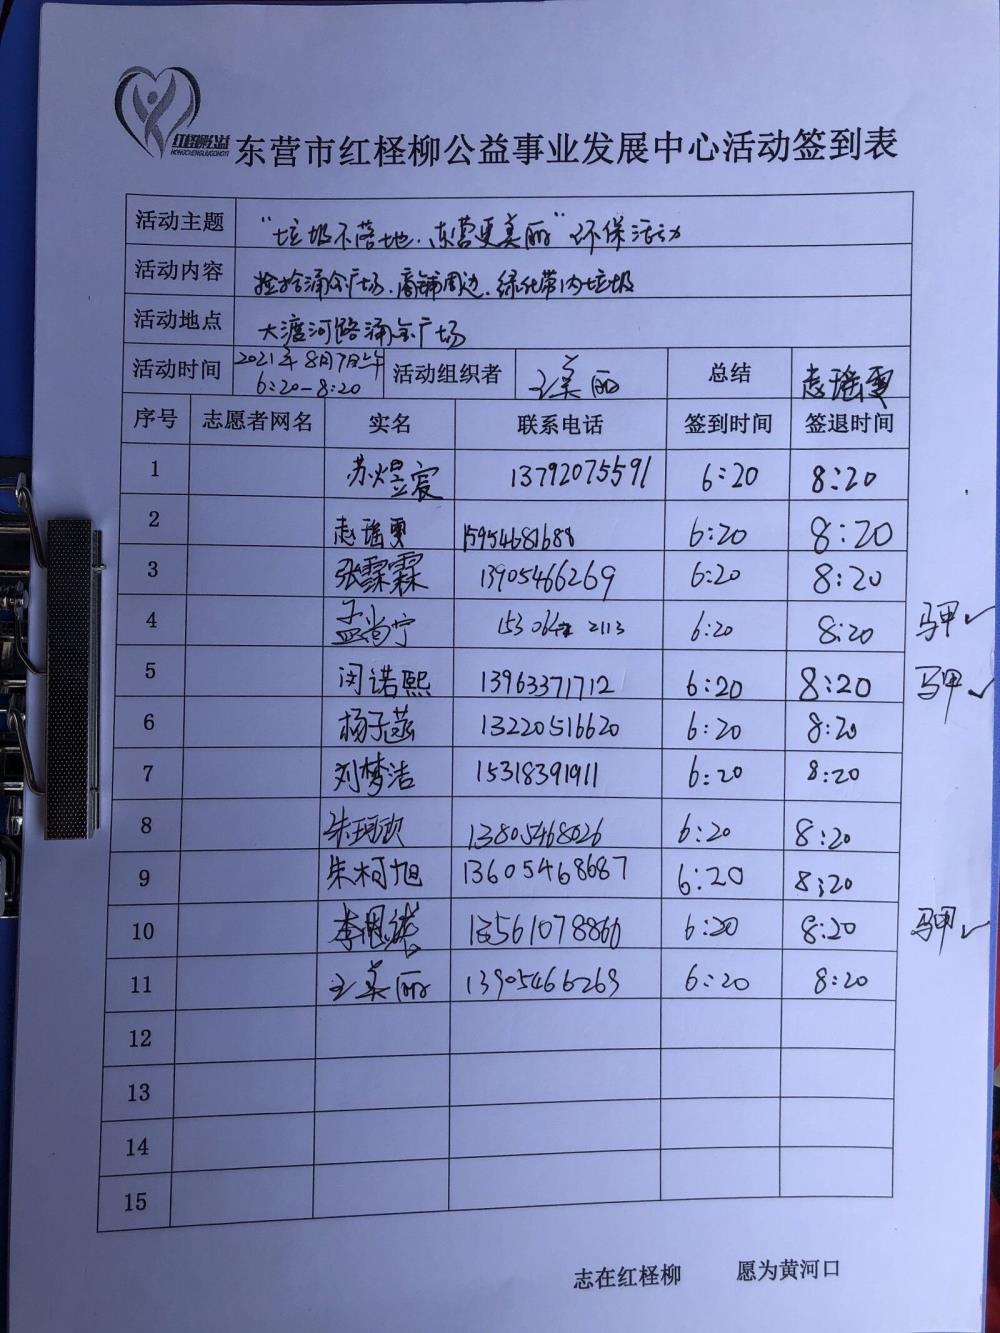 红柽柳公益
HONGCHENGLIUGONGYI
东营市红柽柳公益事业发展中心活动签到表
活动主题 “垃圾不落地.东营更美丽”环保活动
活动内容 捡拾涌金广场.商铺周边.绿化带内垃圾
活动地点 大渡河路涌金广场
活动时间 2021年8月7日上午 6:20-8:20 活动组织者 王美丽 总结 赵瑶雯
序号 志愿者网名 实名 联系电话 签到时间 签退时间
1 苏煜宸 13792075591 6:20 8:20
2 赵瑶雯 15954681688 6:20 8:20
3 张霂霖 13905466269 6:20 8:20
4 孟尚宁 2113 6:20 8:20 马甲✓
5 闵诺熙 13963371712 6:20 8:20 马甲✓
6 杨子菡 13220516620 6:20 8:20
7 刘梦洁 15318391911 6:20 8:20
8 13805468026 6:20 8:20
9 朱柯旭 13605468687 6:20 8:20
10 6:20 8:20 马甲✓
11 王美丽 13905466269 6:20 8:20
12
13
14
15
志在红柽柳 愿为黄河口